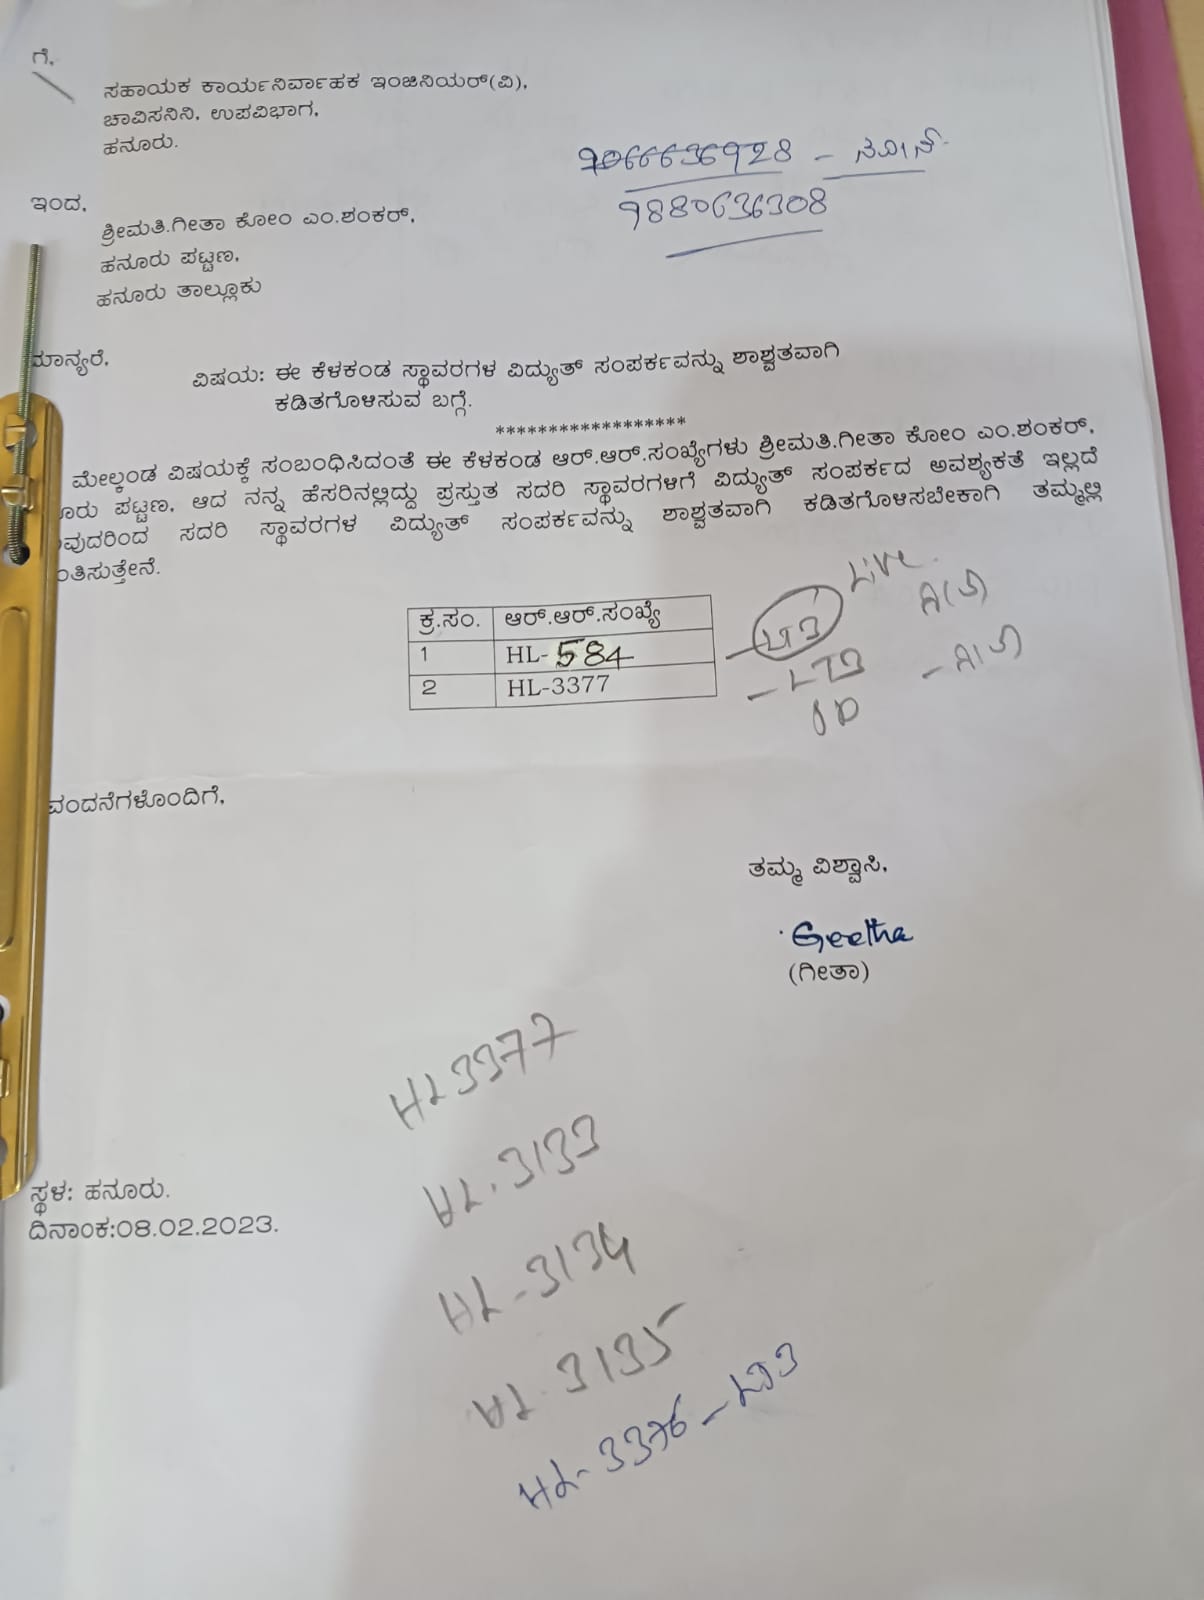 ಗೆ,
ಸಹಾಯಕ ಕಾರ್ಯನಿರ್ವಾಹಕ ಇಂಜಿನಿಯರ್(ವಿ),
ಚಾವಿಸನಿನಿ, ಉಪವಿಭಾಗ,
ಹನೂರು.
9066636928 –
9880636308
ಇಂದ,
ಶ್ರೀಮತಿ.ಗೀತಾ ಕೋಂ ಎಂ.ಶಂಕರ್,
ಹನೂರು ಪಟ್ಟಣ,
ಹನೂರು ತಾಲ್ಲೂಕು
ಮಾನ್ಯರೆ,
ವಿಷಯ: ಈ ಕೆಳಕಂಡ ಸ್ಥಾವರಗಳ ವಿದ್ಯುತ್ ಸಂಪರ್ಕವನ್ನು ಶಾಶ್ವತವಾಗಿ
ಕಡಿತಗೊಳಿಸುವ ಬಗ್ಗೆ.
******************
ಮೇಲ್ಕಂಡ ವಿಷಯಕ್ಕೆ ಸಂಬಂಧಿಸಿದಂತೆ ಈ ಕೆಳಕಂಡ ಆರ್.ಆರ್.ಸಂಖ್ಯೆಗಳು ಶ್ರೀಮತಿ.ಗೀತಾ ಕೋಂ ಎಂ.ಶಂಕರ್,
ೂರು ಪಟ್ಟಣ, ಆದ ನನ್ನ ಹೆಸರಿನಲ್ಲಿದ್ದು ಪ್ರಸ್ತುತ ಸದರಿ ಸ್ಥಾವರಗಳಿಗೆ ವಿದ್ಯುತ್ ಸಂಪರ್ಕದ ಅವಶ್ಯಕತೆ ಇಲ್ಲದೆ
ವುದರಿಂದ ಸದರಿ ಸ್ಥಾವರಗಳ ವಿದ್ಯುತ್ ಸಂಪರ್ಕವನ್ನು ಶಾಶ್ವತವಾಗಿ ಕಡಿತಗೊಳಿಸಬೇಕಾಗಿ ತಮ್ಮಲ್ಲಿ
ಂತಿಸುತ್ತೇನೆ.
ಕ್ರ.ಸಂ. ಆರ್.ಆರ್.ಸಂಖ್ಯೆ
1 HL-584
2 HL-3377
Live
ವಂದನೆಗಳೊಂದಿಗೆ,
ತಮ್ಮ ವಿಶ್ವಾಸಿ,
Geetha
(ಗೀತಾ)
HL3377
HL.3133
HL-3134
HL.3135
HL-3376-
ಸ್ಥಳ: ಹನೂರು.
ದಿನಾಂಕ:08.02.2023.